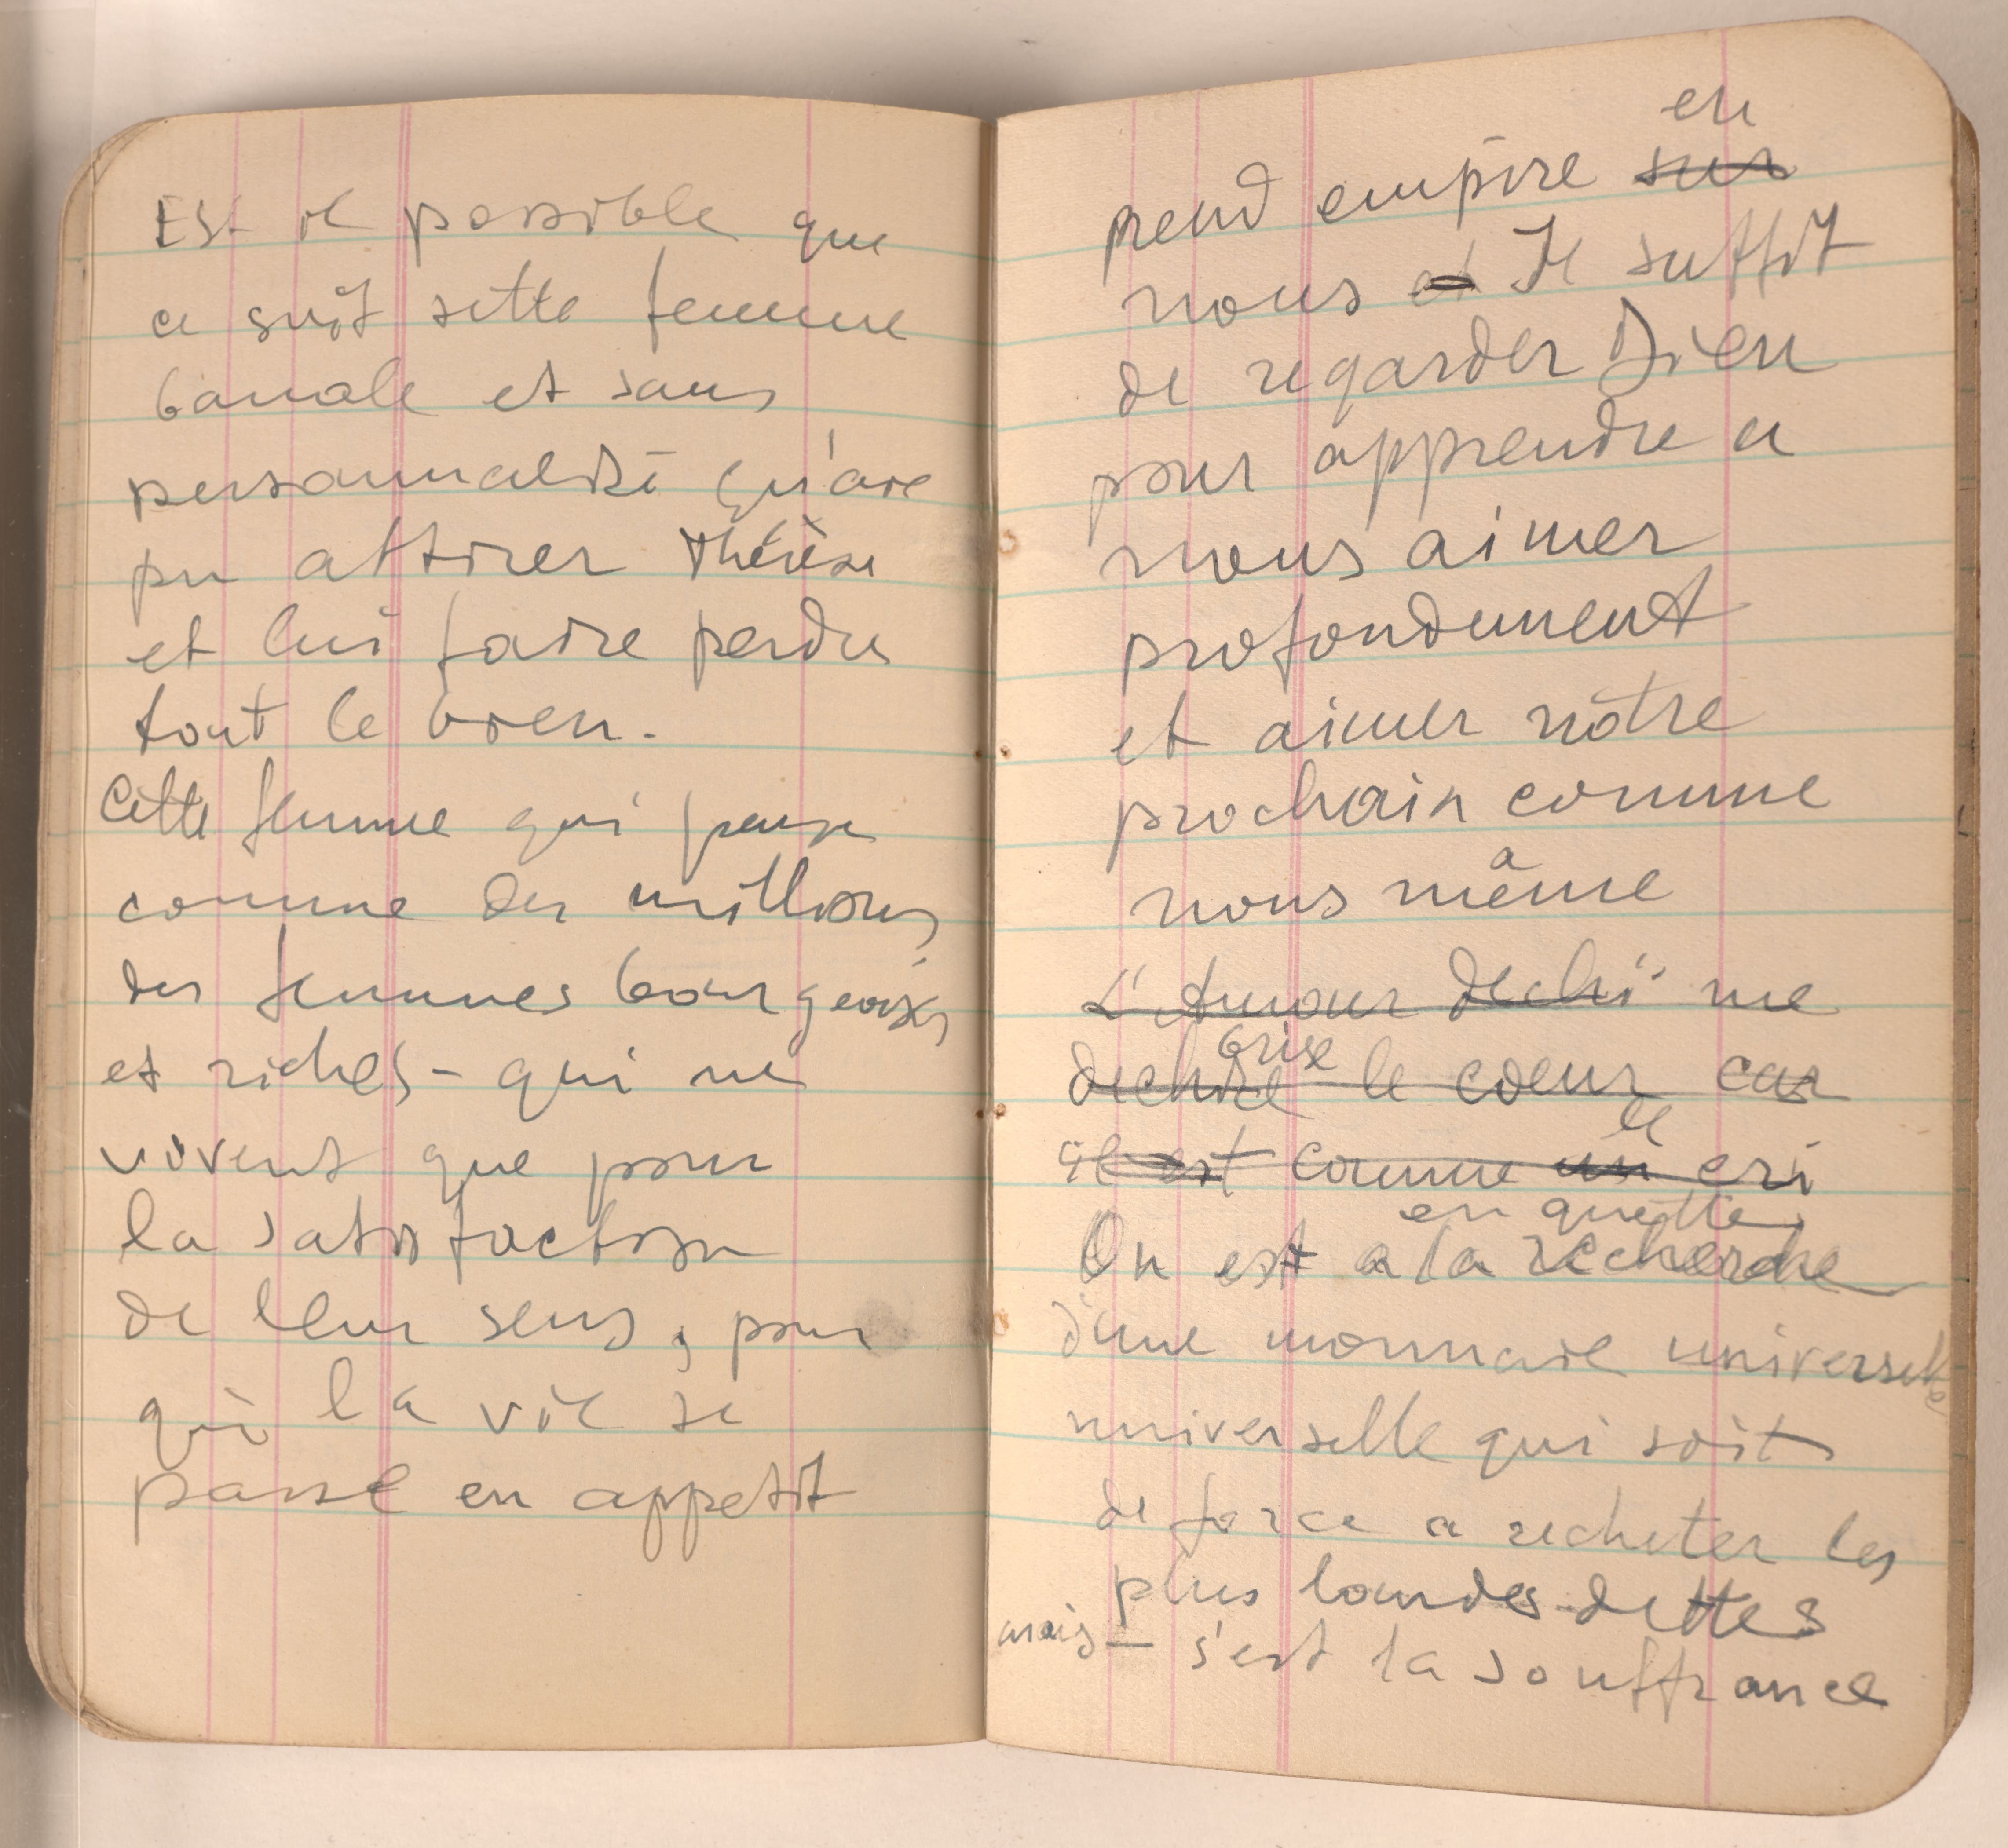 Est il possible que
ce soit sette femme
banale et sans
personnalité qu'aie
pu attirer Thérèse
et lui faire perdre
tout le bien.
Cette femme qui pense
comme des millions
des femmes bourgeoises
et riches - qui ne
vivent que pour
la satisfaction
de leur sens, pour
qui la vie se
passe en appetit
en
prend empire sur
nous et Il suffit
de regarder Dieu
pour apprendre a
nous aimer
profondement
et aimer nôtre
prochain comme
a
nous même
L'Amour dechi me
brise
dechire le coeur car
le
il est comme un cri
en quette
On est a la recherche
d'une monnaie universelle
universelle qui soit
de force a recheter les
plus lourdes dettes
mais - s'est la souffrance